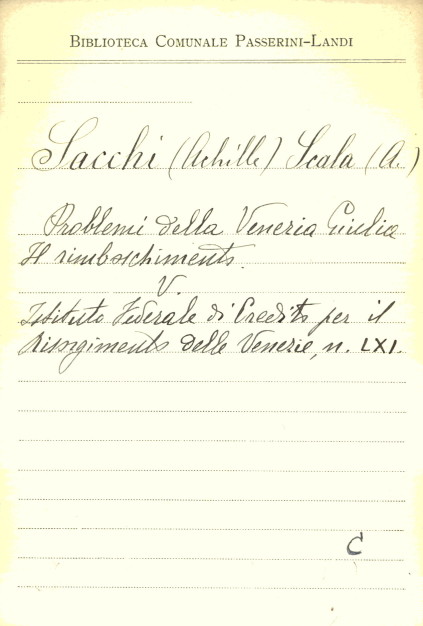 BIBLIOTECA COMUNALE PASSERINI-LANDI
Sacchi (Achille) Scala (A.)
Problemi della Venezia Giulia
Il rimboschimento.
V.
Istituto Federale di Credito per il
Risorgimento delle Venezie, n. LXI.
C